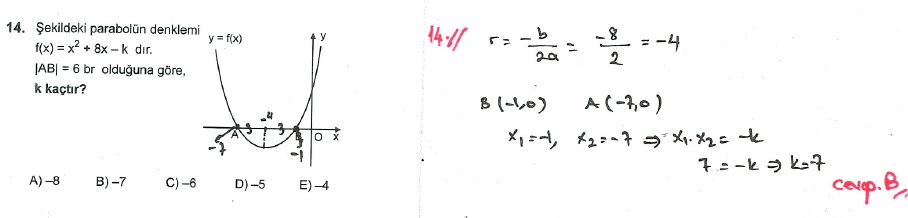 14. Şekildeki parabolün denklemi
f(x) = x² + 8x – k dır.
|AB| = 6 br olduğuna göre,
k kaçtır?
y = f(x)
y
-4
A 3 3 B O x
-7 -1
A) –8 B) –7 C) –6 D) –5 E) –4
14.// r = -b/2a = -8/2 = -4
B(-1,0) A(-7,0)
x₁=-1, x₂=-7 ⇒ x₁.x₂ = -k
7 = -k ⇒ k=7
cevap.B